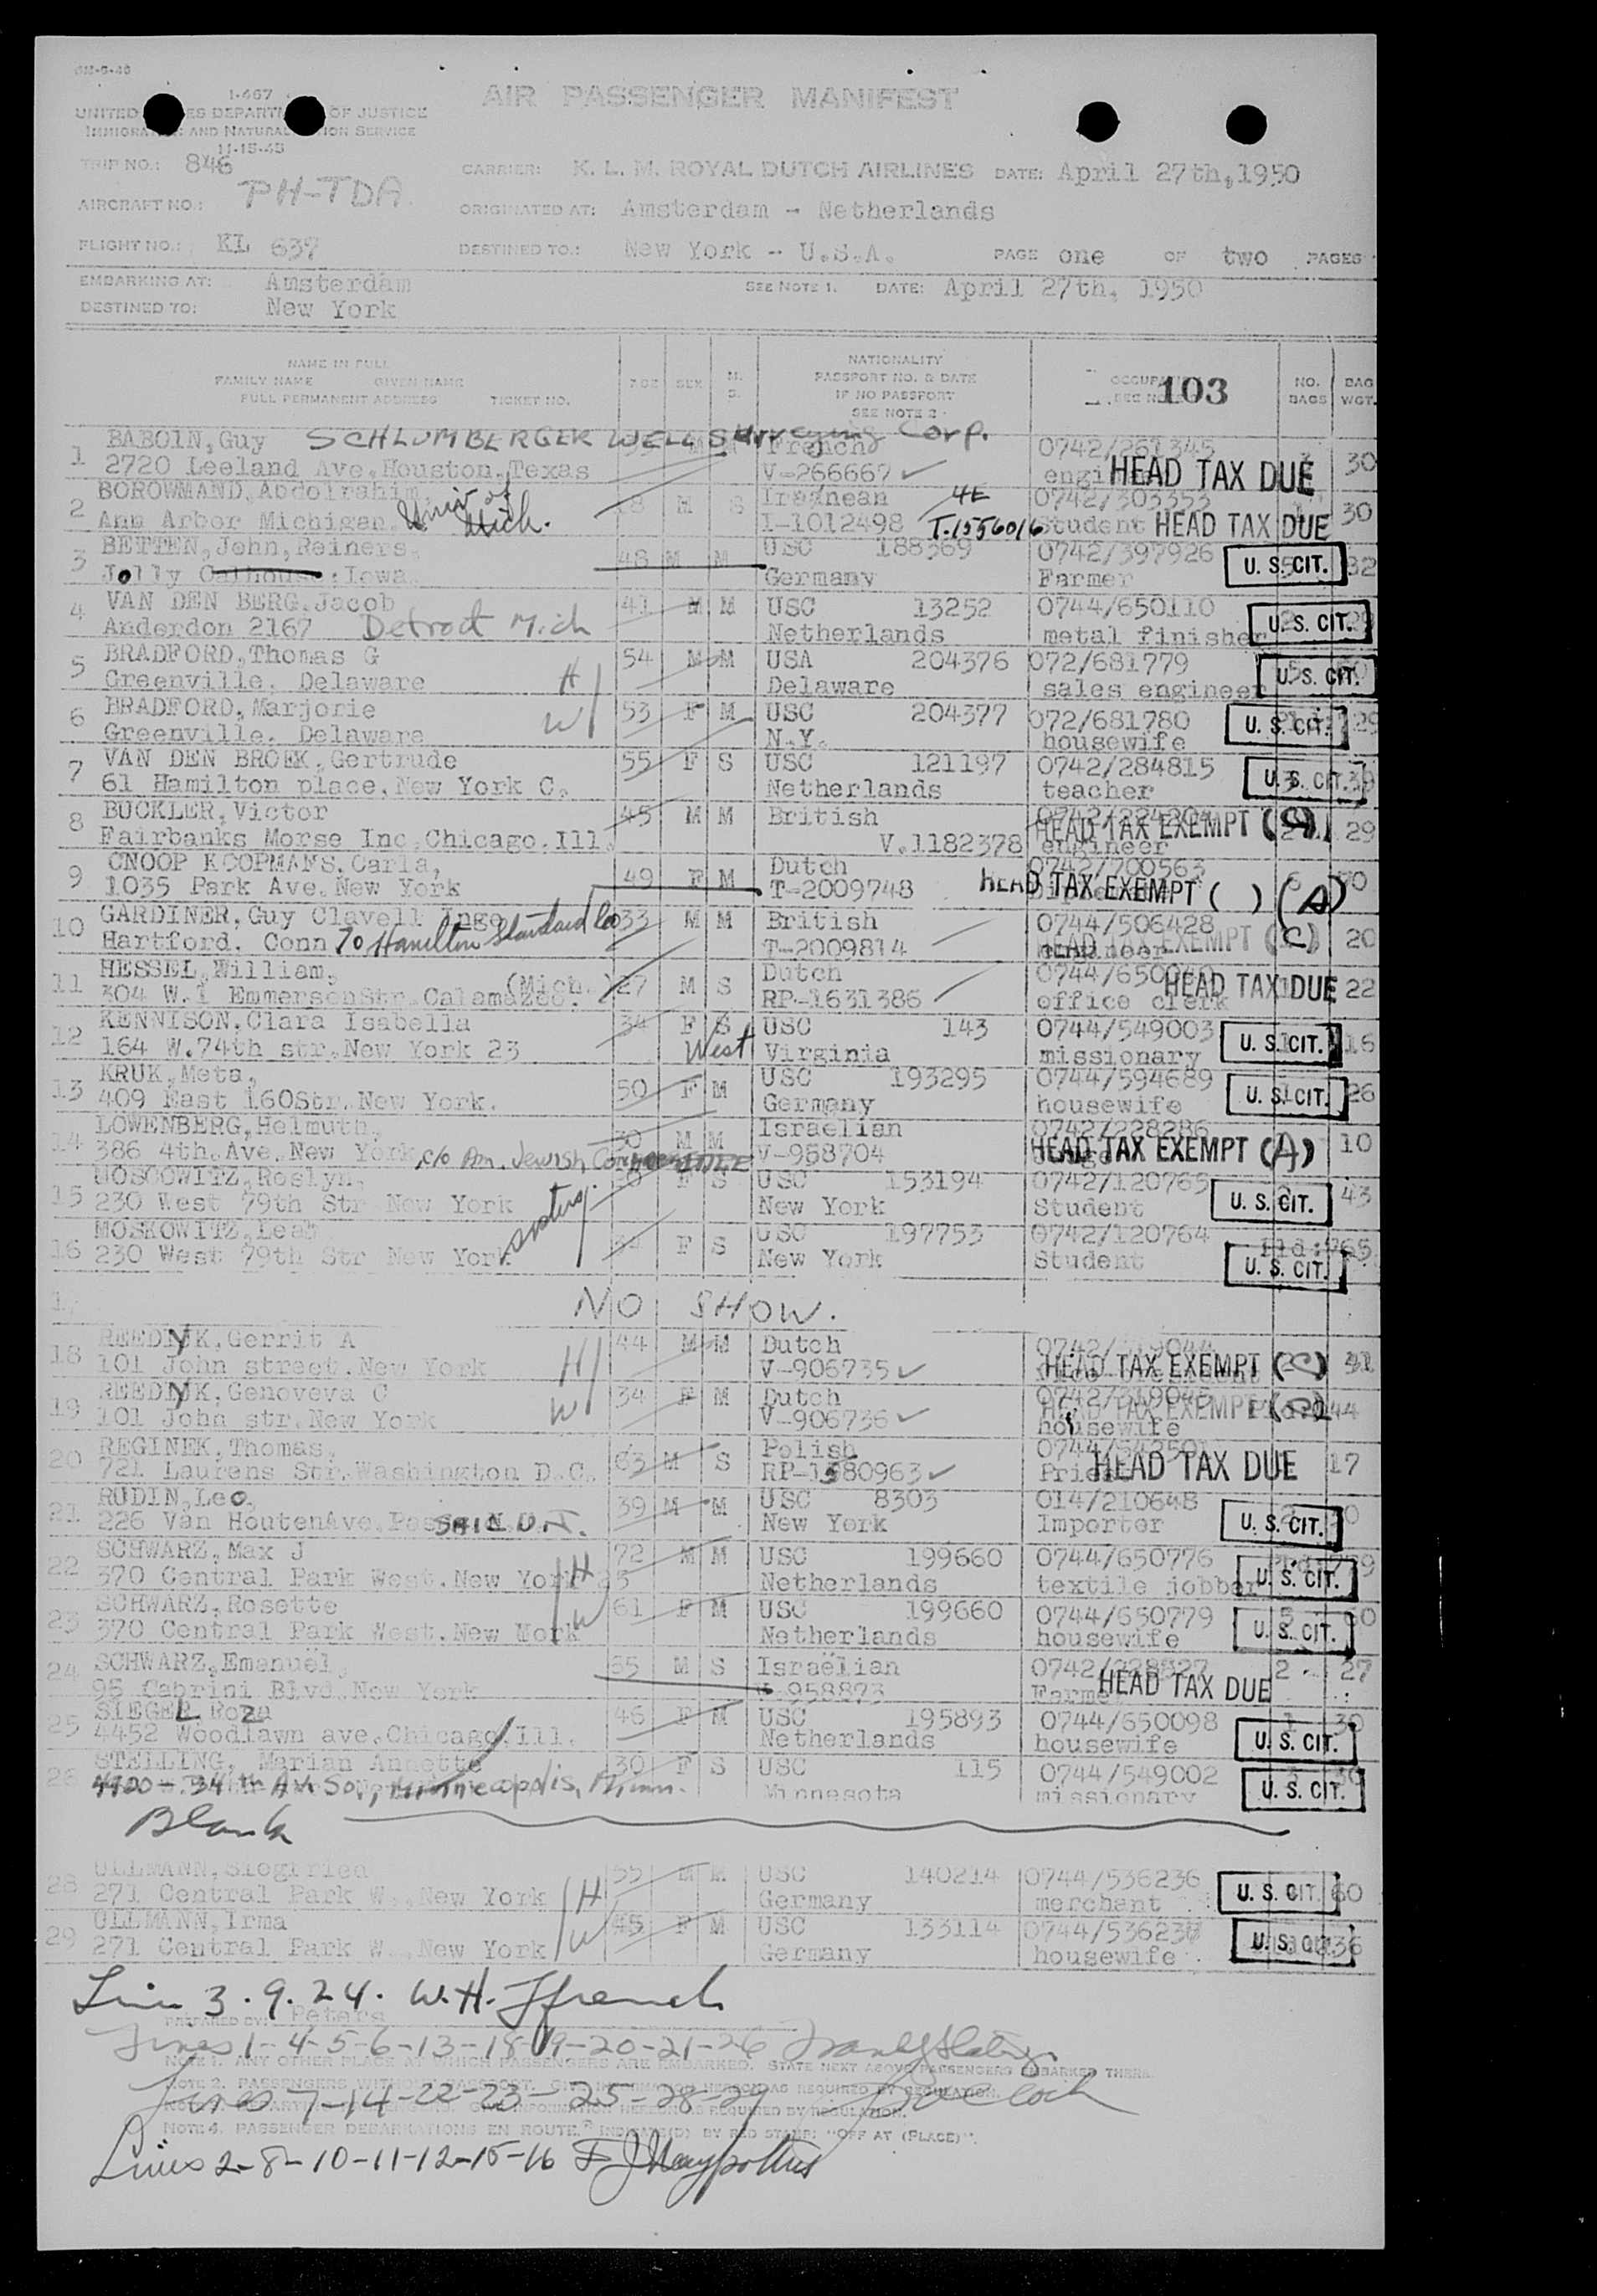 GM-9-46
I-467
UNITED ES DEPART OF JUSTICE
IMMIGRA AND NATURAL ION SERVICE
11-15-45
AIR PASSENGER MANIFEST
TRIP NO.: 846
CARRIER: K. L. M. ROYAL DUTCH AIRLINES DATE: April 27th, 1950
AIRCRAFT NO.: PH-TDA
ORIGINATED AT: Amsterdam - Netherlands
FLIGHT NO.: KL 637
DESTINED TO.: New York - U.S.A. PAGE one OF two PAGES
EMBARKING AT: Amsterdam
SEE NOTE 1. DATE: April 27th, 1950
DESTINED TO: New York
NAME IN FULL
FAMILY NAME GIVEN NAME
FULL PERMANENT ADDRESS TICKET NO.
AGE SEX M. S.
NATIONALITY
PASSPORT NO. & DATE
IF NO PASSPORT
SEE NOTE 2
103
NO. BAGS
BAG WGT.
1 BABOIN, Guy SCHLUMBERGER WELL Surveying Corp. French 0742/261345
2720 Leeland Ave. Houston, Texas V-266667 HEAD TAX DUE 30
2 BOROWMAND, Abdolrahim Univ of Mich. M S Iranean 4E 0742/303353
Ann Arbor Michigan. I-1012498 T.1556016 Student HEAD TAX DUE 30
3 BETTEN, John, Reiners, 48 M M USC 188369 0742/397926
Jolly : Iowa. Germany Farmer U. S. CIT. 32
4 VAN DEN BERG, Jacob 41 M M USC 13252 0744/650110
Anderdon 2167 Detroit Mich Netherlands metal finisher U. S. CIT.
5 BRADFORD, Thomas G H 54 M M USA 204376 072/681779
Greenville. Delaware Delaware sales engineer U. S. CIT.
6 BRADFORD, Marjorie W 53 F M USC 204377 072/681780
Greenville. Delaware N.Y. housewife U. S. CIT. 29
7 VAN DEN BROEK, Gertrude 55 F S USC 121197 0742/284815
61 Hamilton place, New York C. Netherlands teacher U. S. CIT. 39
8 BUCKLER, Victor 45 M M British
Fairbanks Morse Inc, Chicago. Ill. V.1182378 engineer HEAD TAX EXEMPT 29
9 CNOOP KOOPMANS, Carla, 49 F M Dutch 0742/700563
1035 Park Ave. New York T-2009748 HEAD TAX EXEMPT ( ) (A)
10 GARDINER, Guy Clavell Inge 33 M M British 0744/506428
Hartford. Conn To Hamilton Standard Co T-2009814 HEAD TAX EXEMPT (C) 20
11 HESSEL, William, 27 M S Dutch
304 W. I EmmersenStr. Calamazoo. (Mich.) RP-1631386 office clerk HEAD TAX DUE 22
12 KENNISON, Clara Isabella 34 F S USC 143 0744/549003
164 W.74th str. New York 23 West Virginia missionary U. S. CIT. 16
13 KRUK, Meta, 50 F M USC 193295 0744/594689
409 East 160Str. New York. Germany housewife U. S. CIT. 26
14 LOWENBERG, Helmuth, 30 M M Israelian 0742/228286
386 4th. Ave. New York c/o Am. Jewish V-958704 HEAD TAX EXEMPT (A) 10
15 MOSCOWITZ, Roslyn, F S USC 153194 0742/120765
230 West 79th Str New York New York Student U. S. CIT. 43
16 MOSKOWITZ, Leah F S USC 197753 0742/120764
230 West 79th Str New York New York Student U. S. CIT.
NO SHOW.
18 REEDYK, Gerrit A H 44 M M Dutch
101 John street. New York V-906735 HEAD TAX EXEMPT (C) 31
19 REEDYK, Genoveva C W 34 F M Dutch 0742/319045
101 John str. New York V-906736 housewife HEAD TAX EXEMPT 44
20 REGINEK, Thomas, 63 M S Polish
721 Laurens Str. Washington D.C. RP-1580963 Priest HEAD TAX DUE 17
21 RUDIN, Leo. 39 M M USC 8303 014/210648
226 Van HoutenAve. N.J. New York Importer U. S. CIT.
22 SCHWARZ, Max J H 72 M M USC 199660 0744/650776
370 Central Park West. New York 23 Netherlands textile jobber U. S. CIT.
23 SCHWARZ, Rosette W 61 F M USC 199660 0744/650779
370 Central Park West. New York Netherlands housewife U. S. CIT. 60
24 SCHWARZ, Emanuel, 65 M S Israëlian 2 27
95 Cabrini Blvd. New York V-958873 Farmer HEAD TAX DUE
25 SIEGEL, Roza 46 F M USC 195893 0744/650098 1 30
4452 Woodlawn ave. Chicago, Ill. Netherlands housewife U. S. CIT.
26 STELLING, Marian Annette 30 F S USC 115 0744/549002
4400 - 34th Av. So., Minneapolis, Minn. Minnesota missionary U. S. CIT.
Blank
28 ULLMANN, Siegfried H 55 M M USC 140214 0744/536236
271 Central Park W., New York Germany merchant U. S. CIT. 60
29 ULLMANN, Irma W 45 F M USC 133114 0744/536237
271 Central Park W., New York Germany housewife U. S. CIT. 36
Line 3. 9. 24. W.H. Ffrench
PREPARED BY: Peters
Lines 1-4-5-6-13-18-19-20-21-26
NOTE 1. ANY OTHER PLACE AT WHICH PASSENGERS ARE EMBARKED. STATE NEXT ABOVE PASSENGERS EMBARKED THERE.
NOTE 2. PASSENGERS WITHOUT PASSPORT. REQUIRED BY REGULATION.
Lines 7-14-22-23-25-28-29
INFORMATION HEREON AS REQUIRED BY REGULATION.
NOTE 4. PASSENGER DEBARKATIONS EN ROUTE INDICATE(D) BY RED STAMP: "OFF AT (PLACE)".
Lines 2-8-10-11-12-15-16